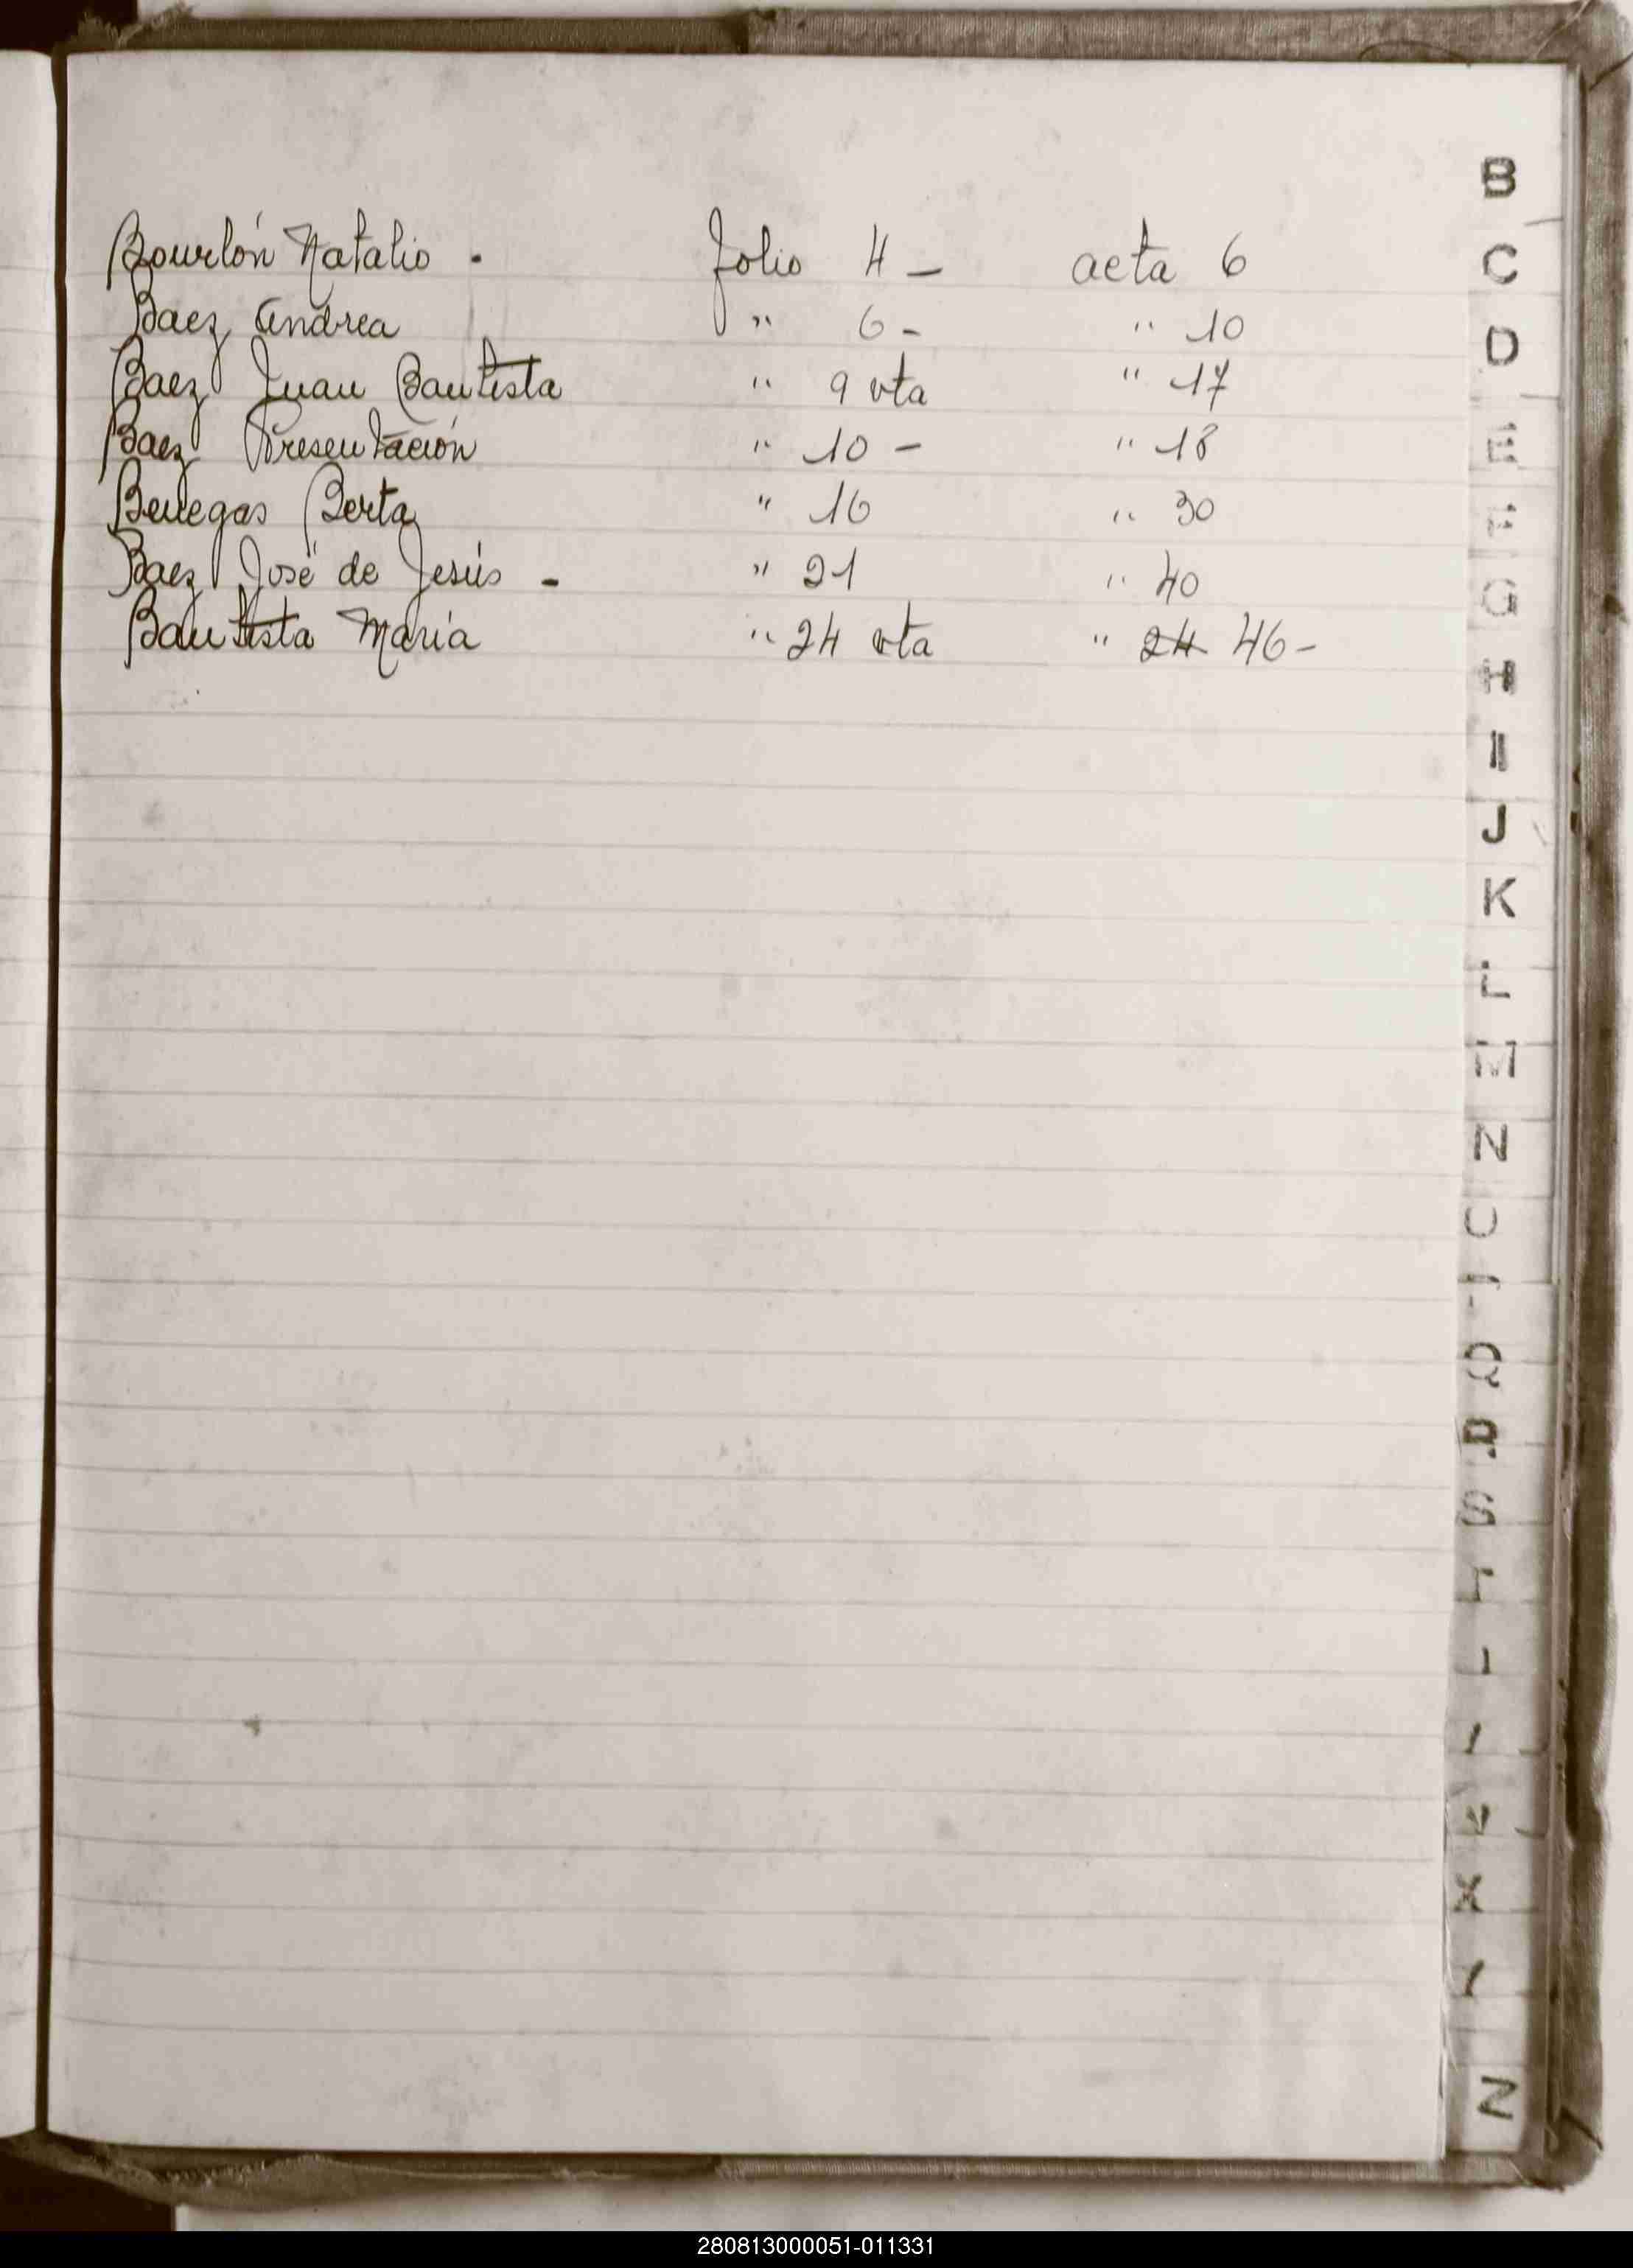 Bourlón Natalio - folio 4 - acta 6
Baez Andrea " 6 - " 10
Baez Juan Bautista " 9 vta " 17
Baez Presentación " 10 - " 18
Benegas Berta " 16 " 30
Baez José de Jesús - " 21 " 40
Bautista María " 24 vta " 24 46 -
B
C
D
E
F
G
H
I
J
K
L
M
N
O
Q
R
S
T
X
Z
280813000051-011331